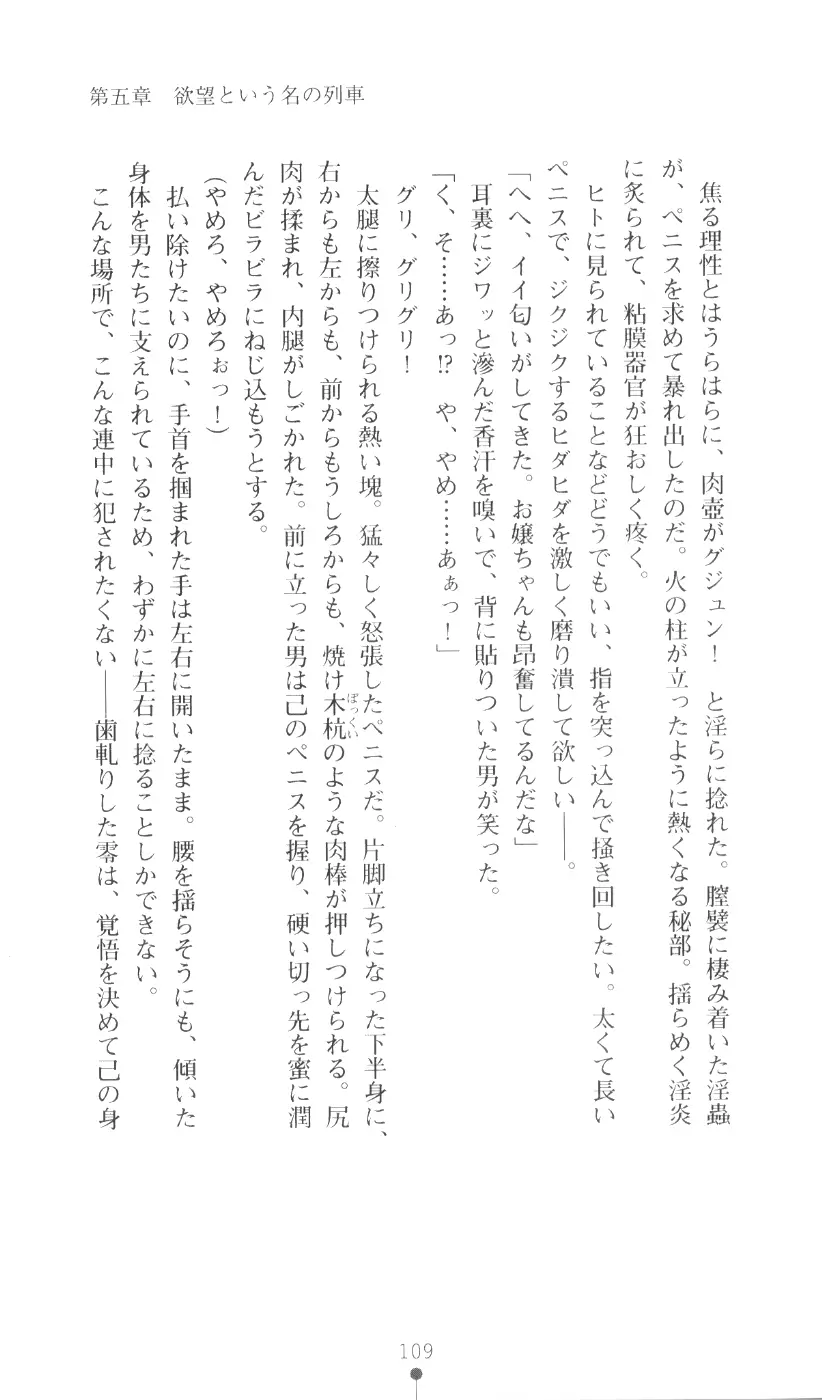 第五章　欲望という名の列車
　焦る理性とはうらはらに、肉壺がグジュン！　と淫らに捻れた。膣襞に棲み着いた淫蟲
が、ペニスを求めて暴れ出したのだ。火の柱が立ったように熱くなる秘部。揺らめく淫炎
に炙られて、粘膜器官が狂おしく疼く。
　ヒトに見られていることなどどうでもいい、指を突っ込んで掻き回したい。太くて長い
ペニスで、ジクジクするヒダヒダを激しく磨り潰して欲しい――。
「へへ、イイ匂いがしてきた。お嬢ちゃんも昂奮してるんだな」
　耳裏にジワッと滲んだ香汗を嗅いで、背に貼りついた男が笑った。
「く、そ……あっ!?　や、やめ……あぁっ！」
　グリ、グリグリ！
　太腿に擦りつけられる熱い塊。猛々しく怒張したペニスだ。片脚立ちになった下半身に、
右からも左からも、前からもうしろからも、焼け木杭のような肉棒が押しつけられる。尻
ぼっくい
肉が揉まれ、内腿がしごかれた。前に立った男は己のペニスを握り、硬い切っ先を蜜に潤
んだビラビラにねじ込もうとする。
（やめろ、やめろぉっ！）
　払い除けたいのに、手首を掴まれた手は左右に開いたまま。腰を揺らそうにも、傾いた
身体を男たちに支えられているため、わずかに左右に捻ることしかできない。
　こんな場所で、こんな連中に犯されたくない――歯軋りした零は、覚悟を決めて己の身
109